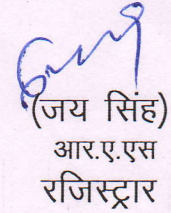 (जय सिंह)
आर.ए.एस
रजिस्ट्रार